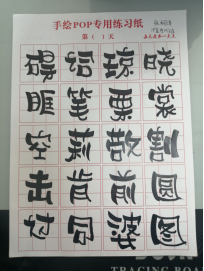 手绘POP专用练习纸
第( )天
碍 琼 晓
眶 笔 栗 裳
空 莉 散 割
击 肯 前 圆
过 同 婆 图
TRACING BOARD